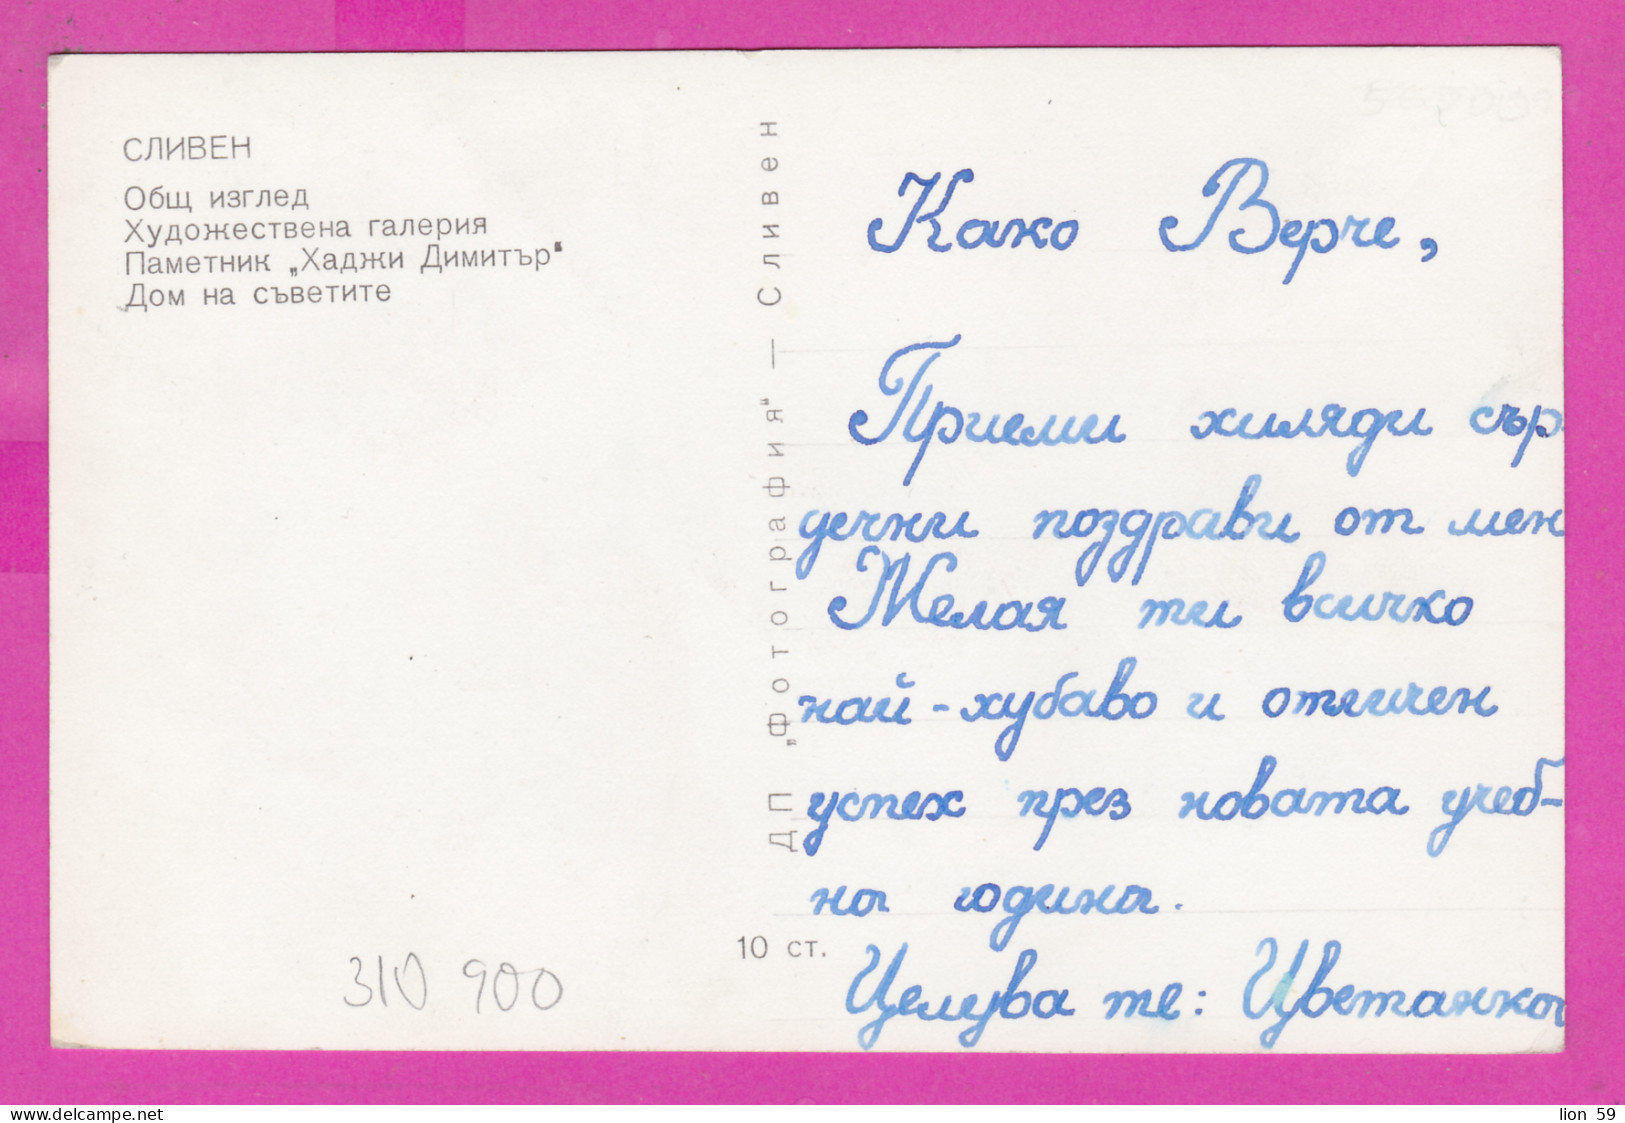 СЛИВЕН
Общ изглед
Художествена галерия
Паметник „Хаджи Димитър“
Дом на съветите
ДП „Фотография“ — Сливен
10 ст.
Како Верче,
Приеми хиляди сър
дечни поздрави от мен
Желая ти всичко
най-хубаво и отличен
успех през новата учеб-
на година.
Целува те: Цветанка
310 900
lion 59
www.delcampe.net